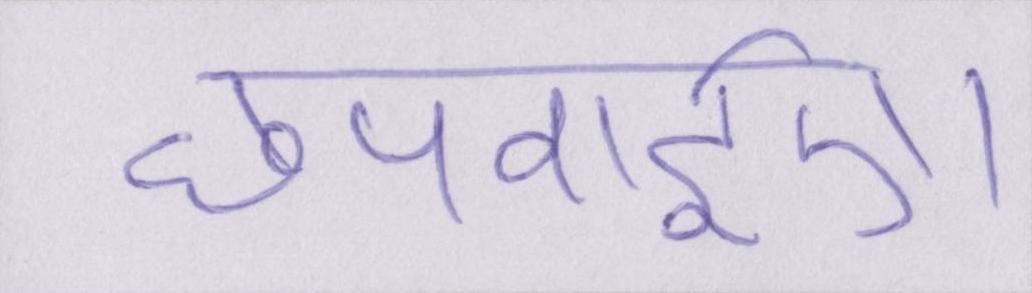 छपवाईए।